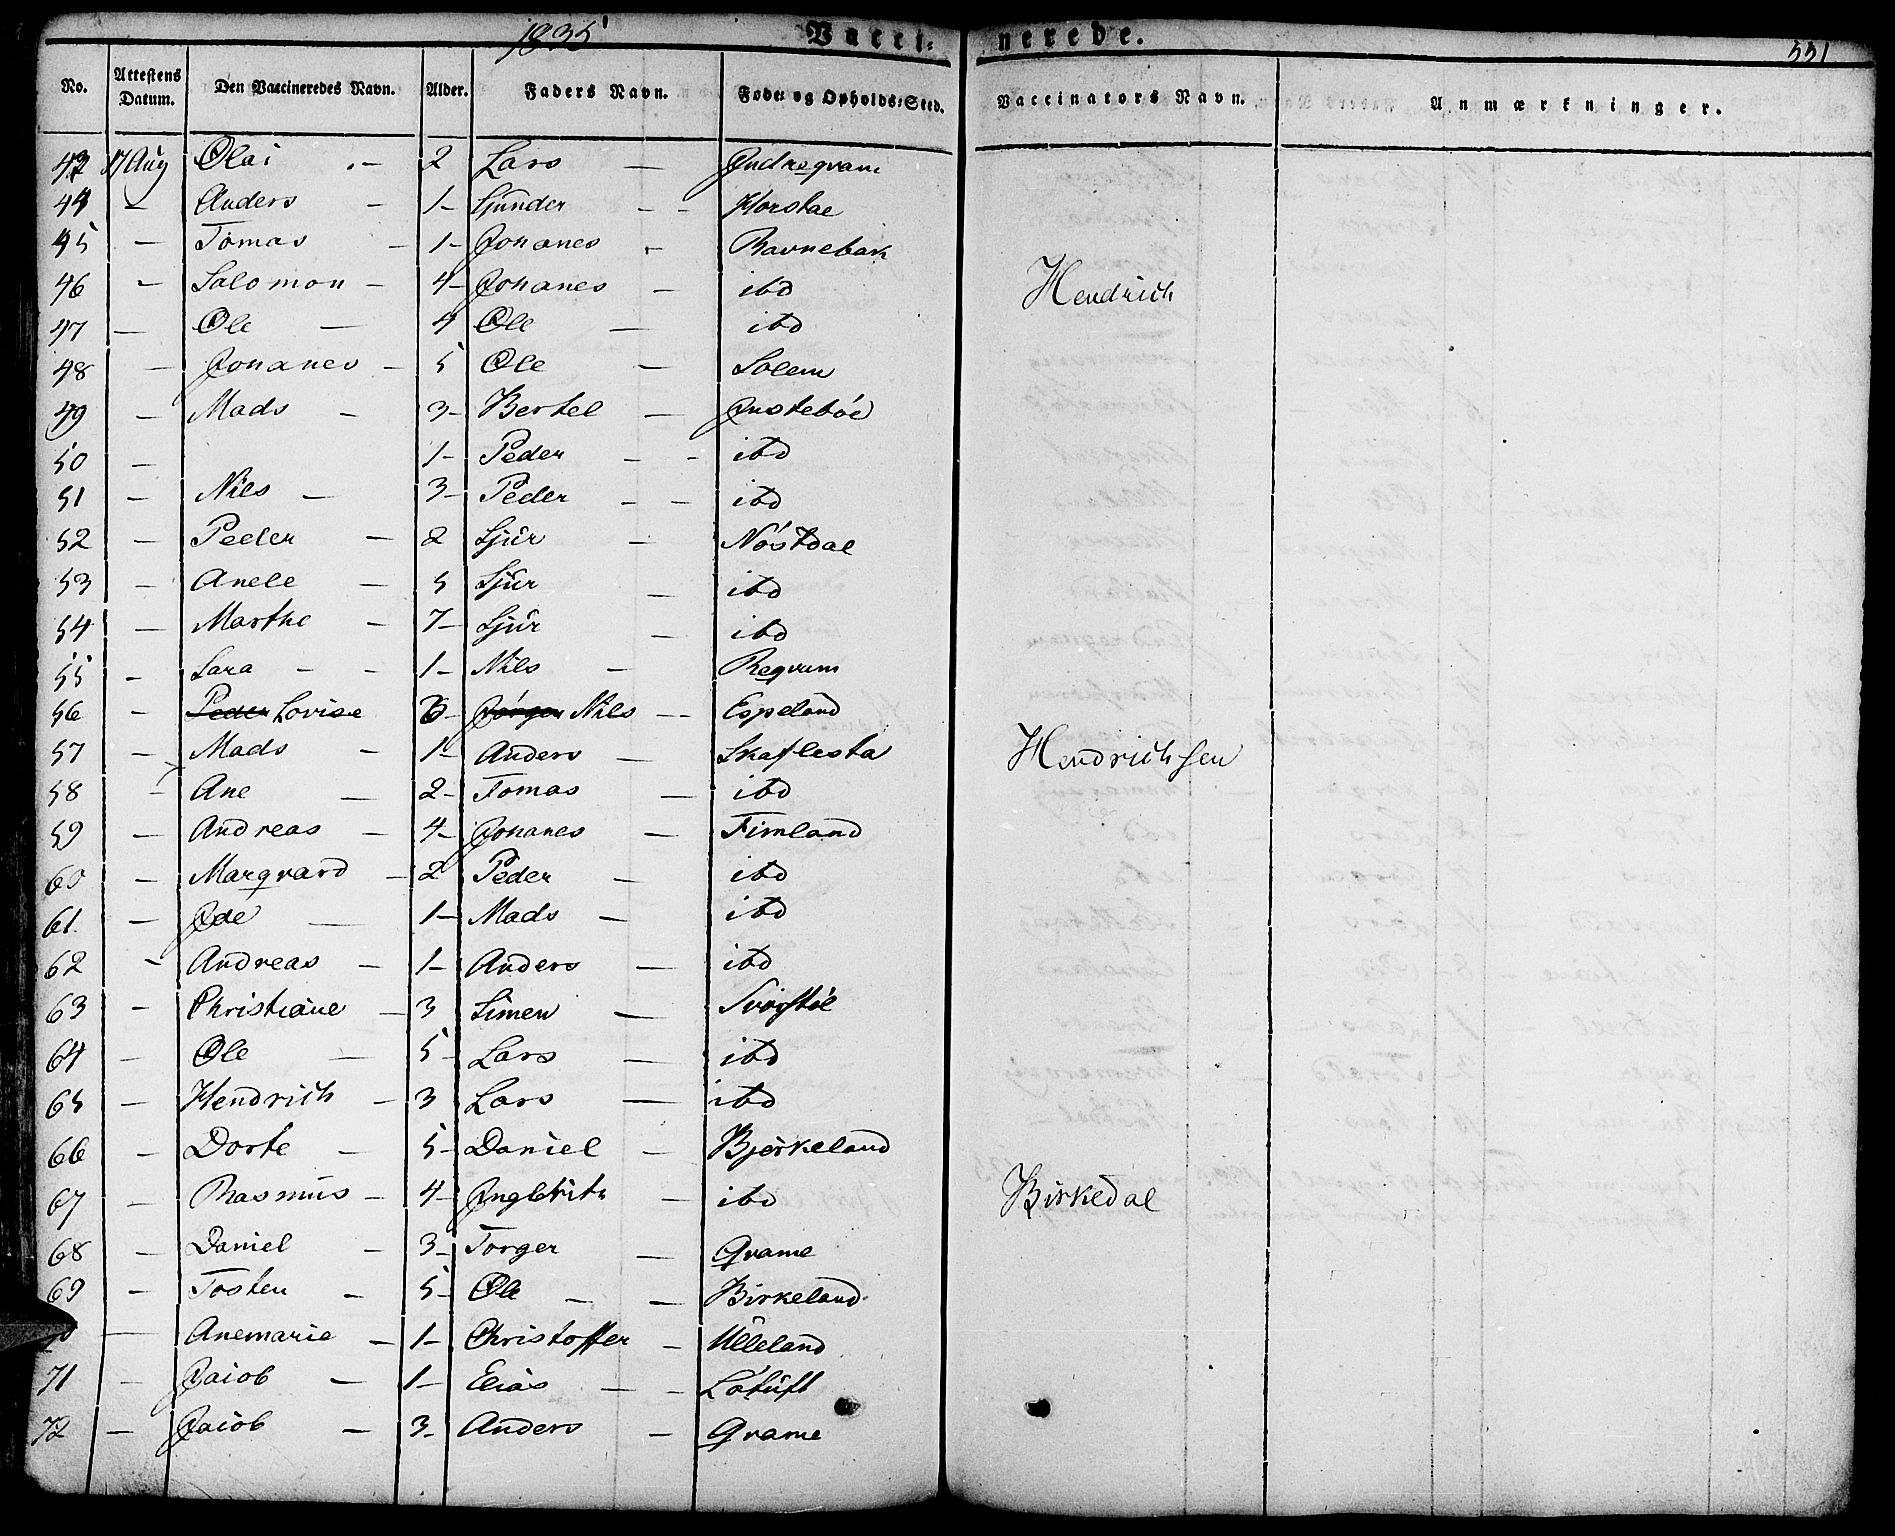 1835
Vacci=
nerede.
551
No. Attestens Datum. Den Vaccineredes Navn. Alder. Faders Navn. Føde= og Opholds=Sted. Vaccinators Navn. Anmærkninger.
43 17 Aug Olai - 2 Lars - Indreqvam
44 - Anders - 1 - Sjunder - - Horstae
45 - Tomas - 1 - Johanes - Ravnebak
46 - Salomon - 4 - Johanes - ibd Hendrich
47 - Ole - 4 Ole - ibd
48 - Johanes - 5 Ole - Solem
49 - Mads - 3 - Bertel - Insteböe
50 - 1 - Peder - - ibd
51 - Nils - 3 - Peder - - ibd
52 - Peder - 2 Sjur - Nöstdal
53 - Anele - 5 Sjur - ibd
54 - Marthe - 7 - Sjur - ibd
55 - Lara - - 1 - Nils - Reqvum
56 - Peder Lovise 6 - Jørgen Nils - - Espeland
57 - Mads - 1 - Anders - Skaflesta Hendrichsen
58 - Ane - 2 - Tomas - ibd
59 - Andreas - 4 - Johanes - Fimland
60 - Marqvard - 2 Peder - ibd
61. - Ide - 1 - Mads - ibd
62 - Andreas - 1 - Anders - ibd
63 - Christiane - 3 Simen -
64 - Ole - 5 - Lars - ibd
65 - Hendrich - 3 Lars - ibd
66 - Dorte - 5 - Daniel - Bjerkeland
67 - Rasmus - 4 - - ibd Birkedal
68 - Daniel - 3 - Torger - Grame
69 - Tosten - 5 - Ole - - Birkeland
70 - Anemarie - 1 - Christoffer - Ulleland
71 - Jaiob - 1 - Elias - - Lotuft
72 - Jaiob - 3 - Anders - Grame